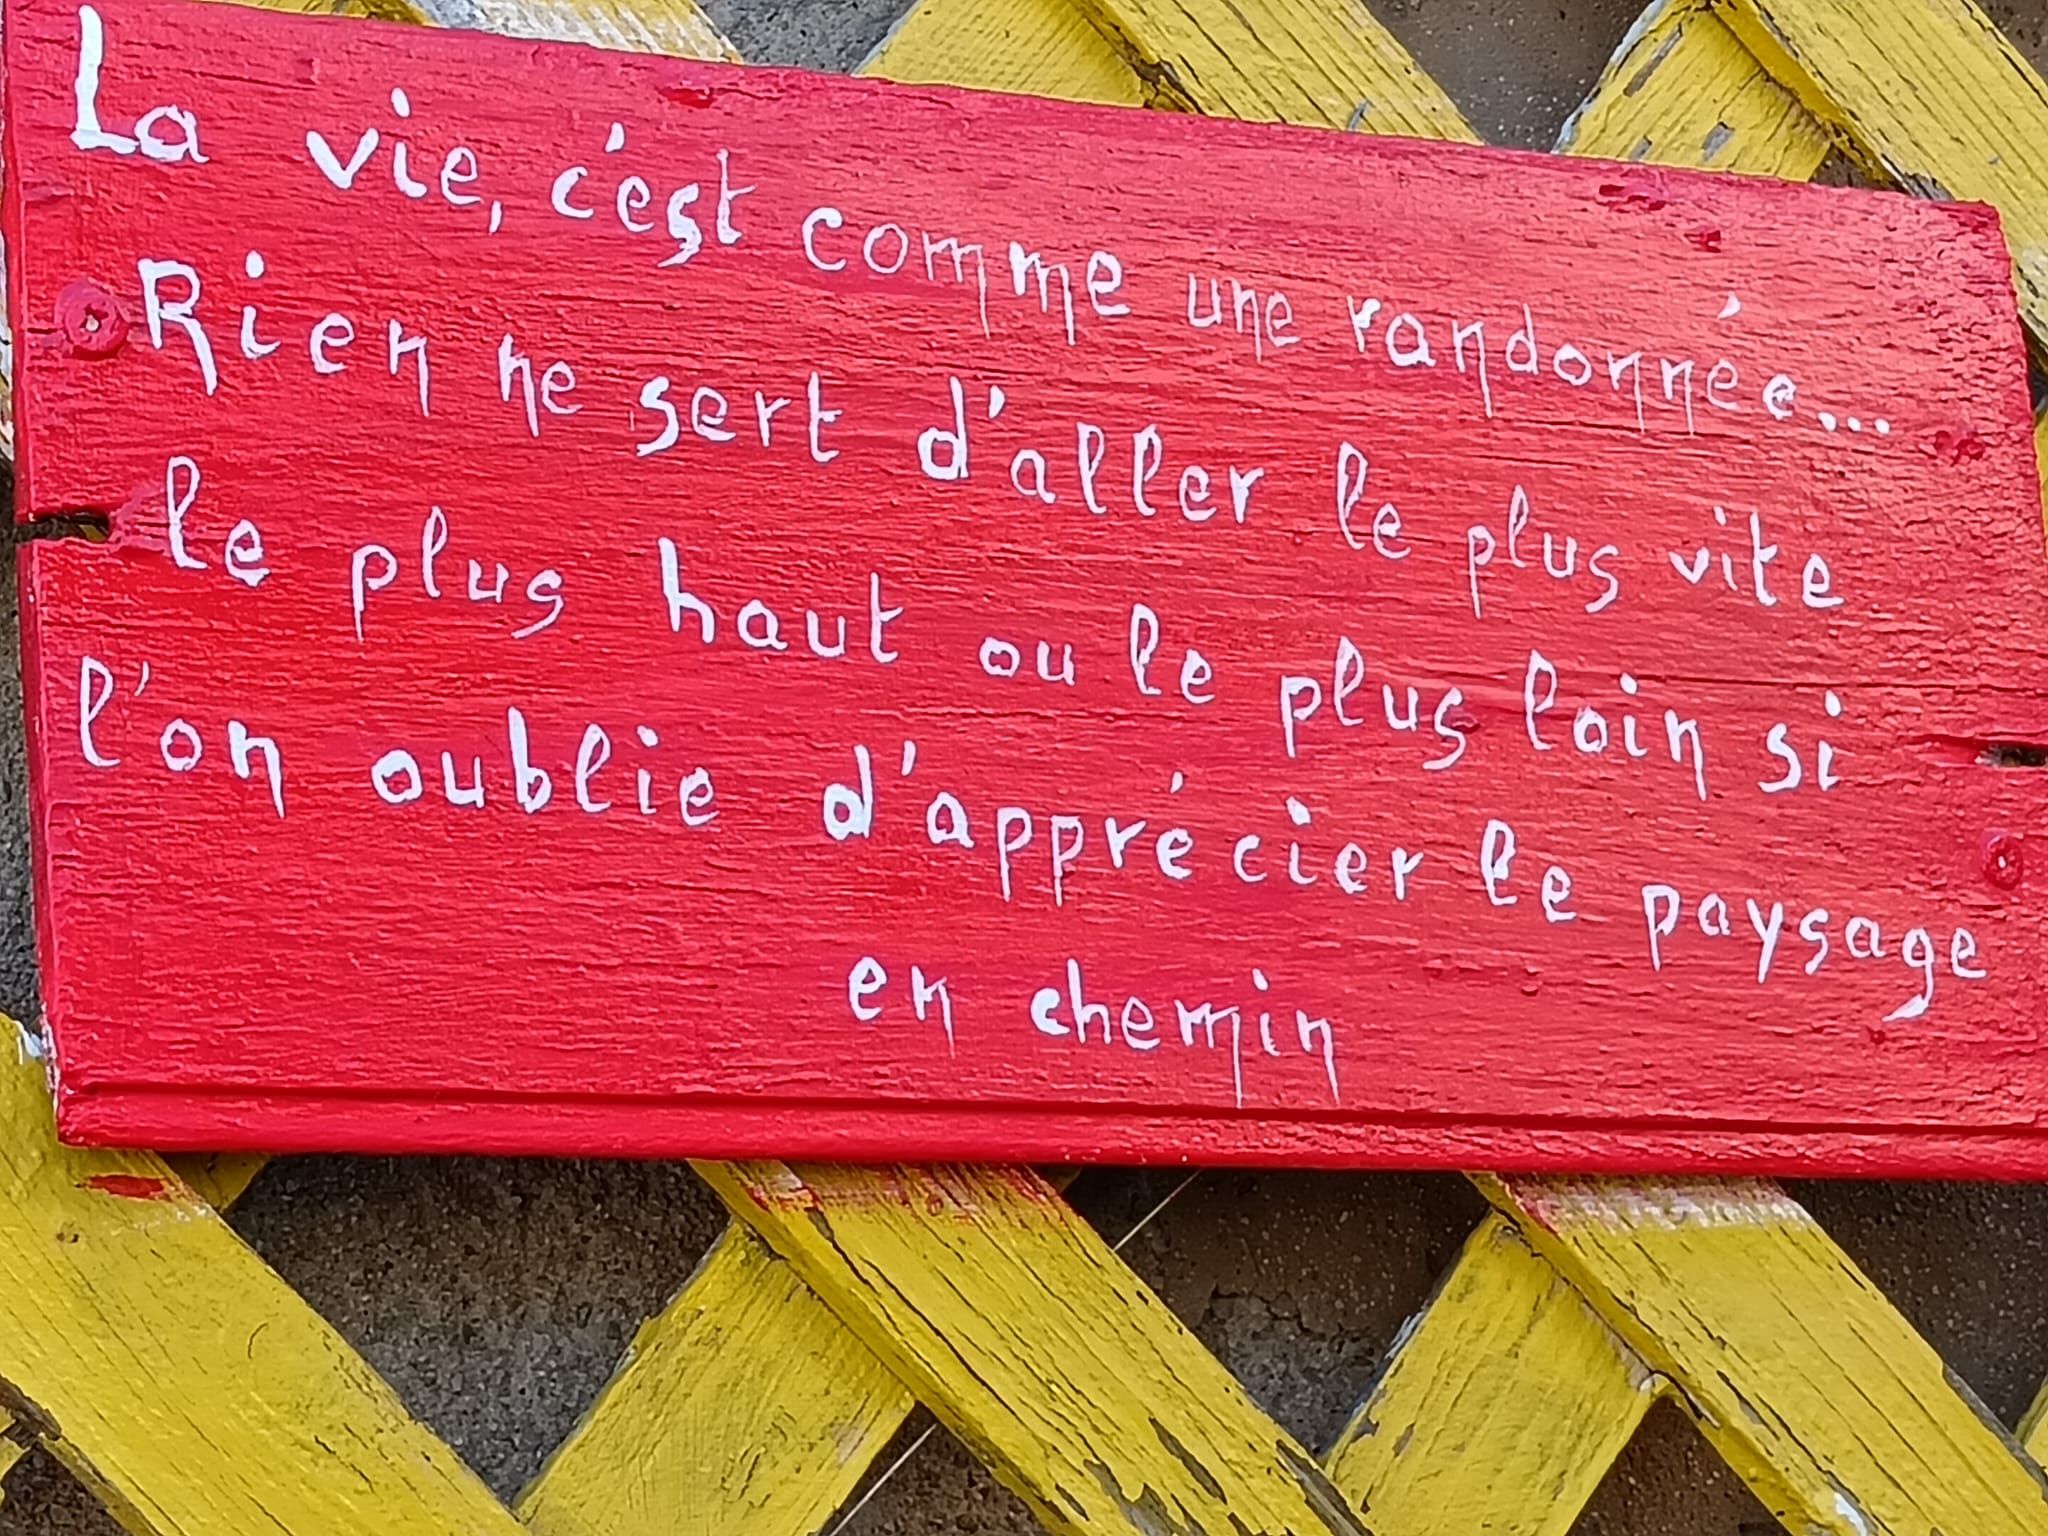 La vie, c'est comme une randonnée...
Rien ne sert d'aller le plus vite
le plus haut ou le plus loin si
l'on oublie d'apprécier le paysage
en chemin